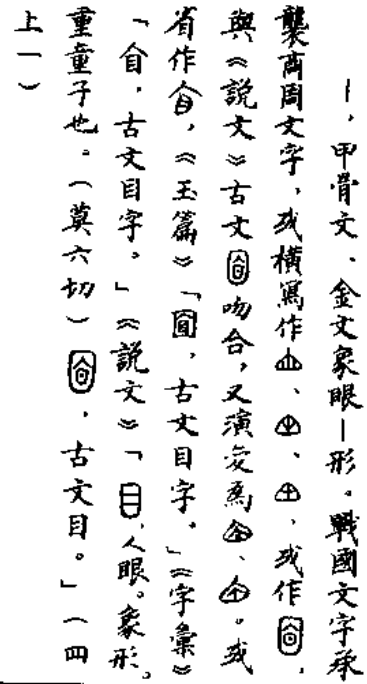 ｜，甲骨文、金文象眼｜形。戰國文字承
襲商周文字，或橫寫作、、，或作，
與《説文》古文吻合，又演变爲、。或
省作，《玉篇》「，古文目字。」《字彙》
「，古文目字。」《説文》「目，人眼。象形。
重童子也。（莫六切），古文目。」（四
上一）